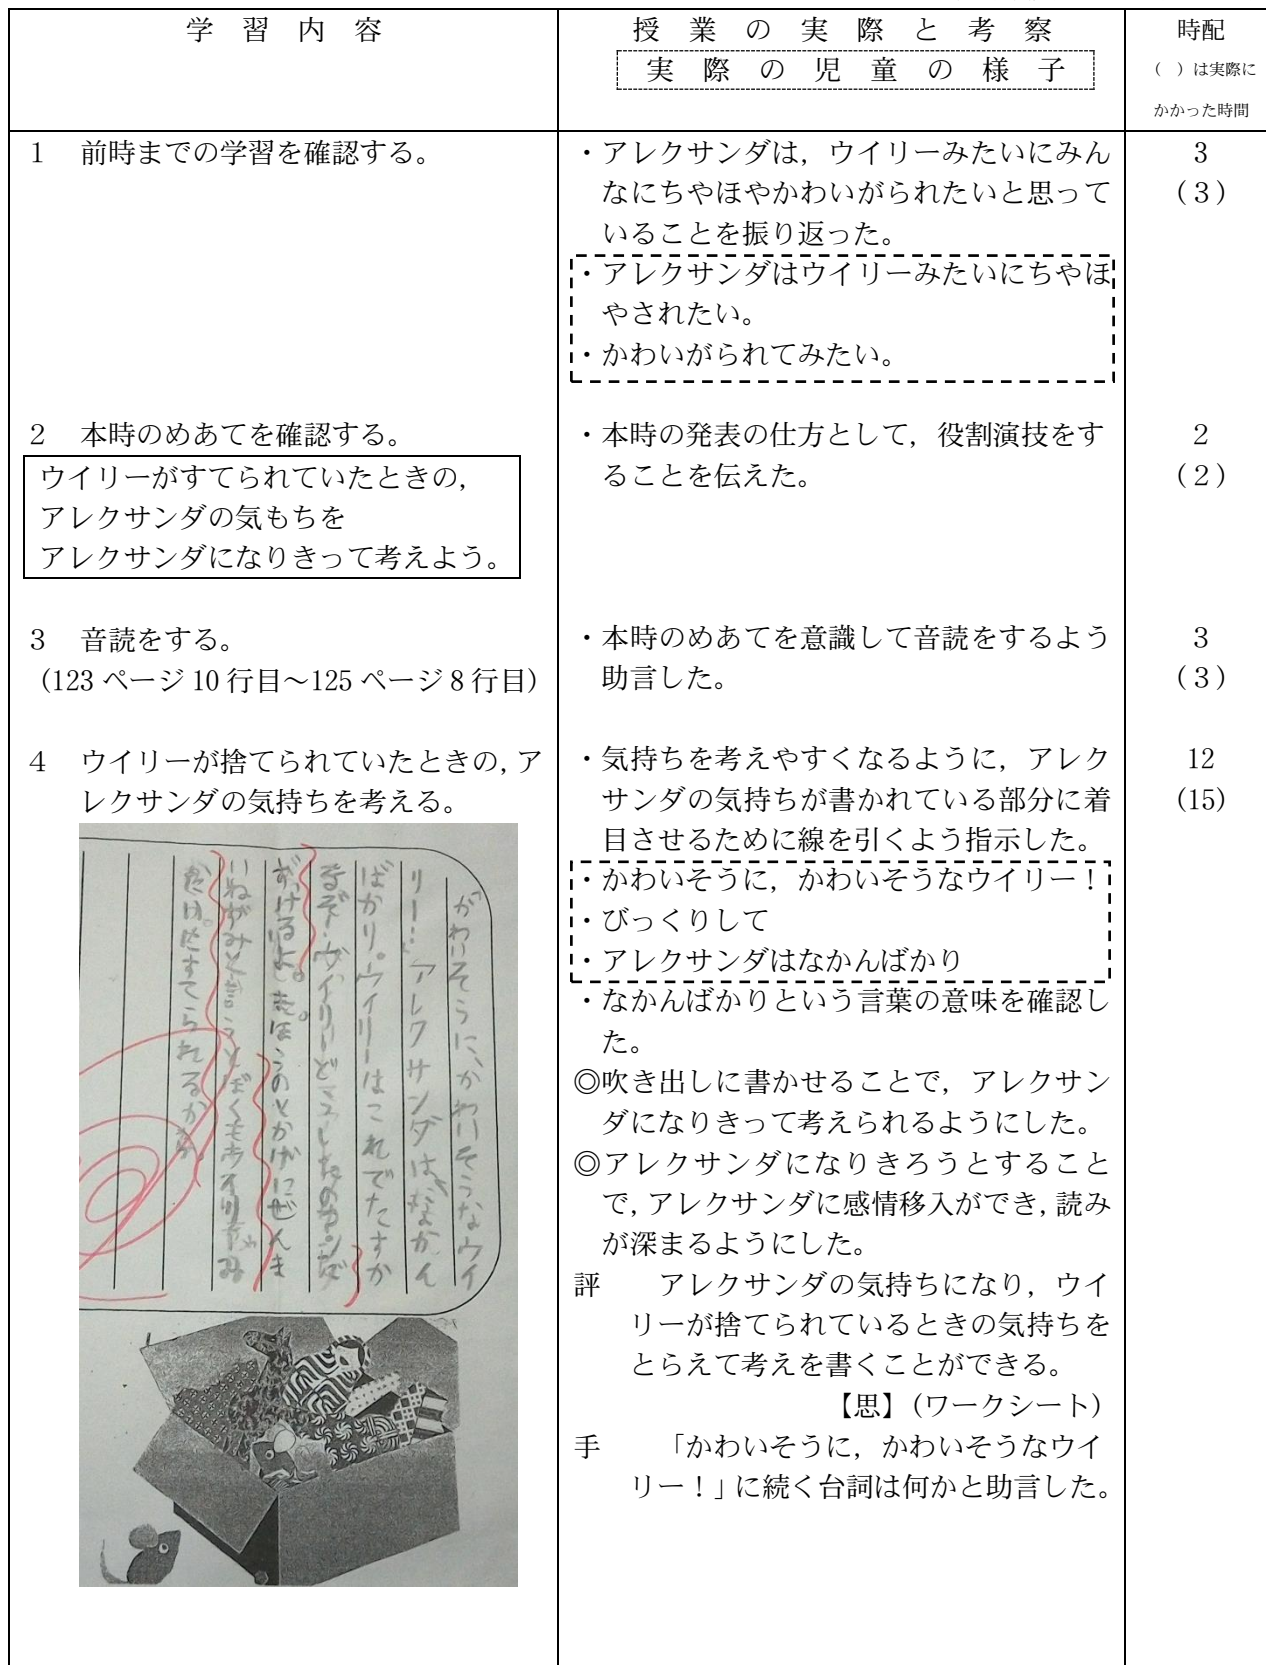 学習内容
授業の実際と考察
実際の児童の様子
時配
（　）は実際に
かかった時間
１　前時までの学習を確認する。
・アレクサンダは，ウイリーみたいにみん
なにちやほやかわいがられたいと思って
いることを振り返った。
・アレクサンダはウイリーみたいにちやほ
やされたい。
・かわいがられてみたい。
３
(３)
２　本時のめあてを確認する。
ウイリーがすてられていたときの，
アレクサンダの気もちを
アレクサンダになりきって考えよう。
・本時の発表の仕方として，役割演技をす
ることを伝えた。
２
(２)
３　音読をする。
（123 ページ 10 行目～125 ページ 8 行目）
・本時のめあてを意識して音読をするよう
助言した。
３
(３)
４　ウイリーが捨てられていたときの，ア
レクサンダの気持ちを考える。
「かわいそうに、かわいそうなウイ
リー！」アレクサンダは、なかん
ばかり。ウイリーはこれでたすか
・気持ちを考えやすくなるように，アレク
サンダの気持ちが書かれている部分に着
目させるために線を引くよう指示した。
・かわいそうに，かわいそうなウイリー！
・びっくりして
・アレクサンダはなかんばかり
・なかんばかりという言葉の意味を確認し
た。
◎吹き出しに書かせることで，アレクサン
ダになりきって考えられるようにした。
◎アレクサンダになりきろうとすること
で，アレクサンダに感情移入ができ，読み
が深まるようにした。
評　アレクサンダの気持ちになり，ウイ
リーが捨てられているときの気持ちを
とらえて考えを書くことができる。
【思】（ワークシート）
手　「かわいそうに，かわいそうなウイ
リー！」に続く台詞は何かと助言した。
12
(15)